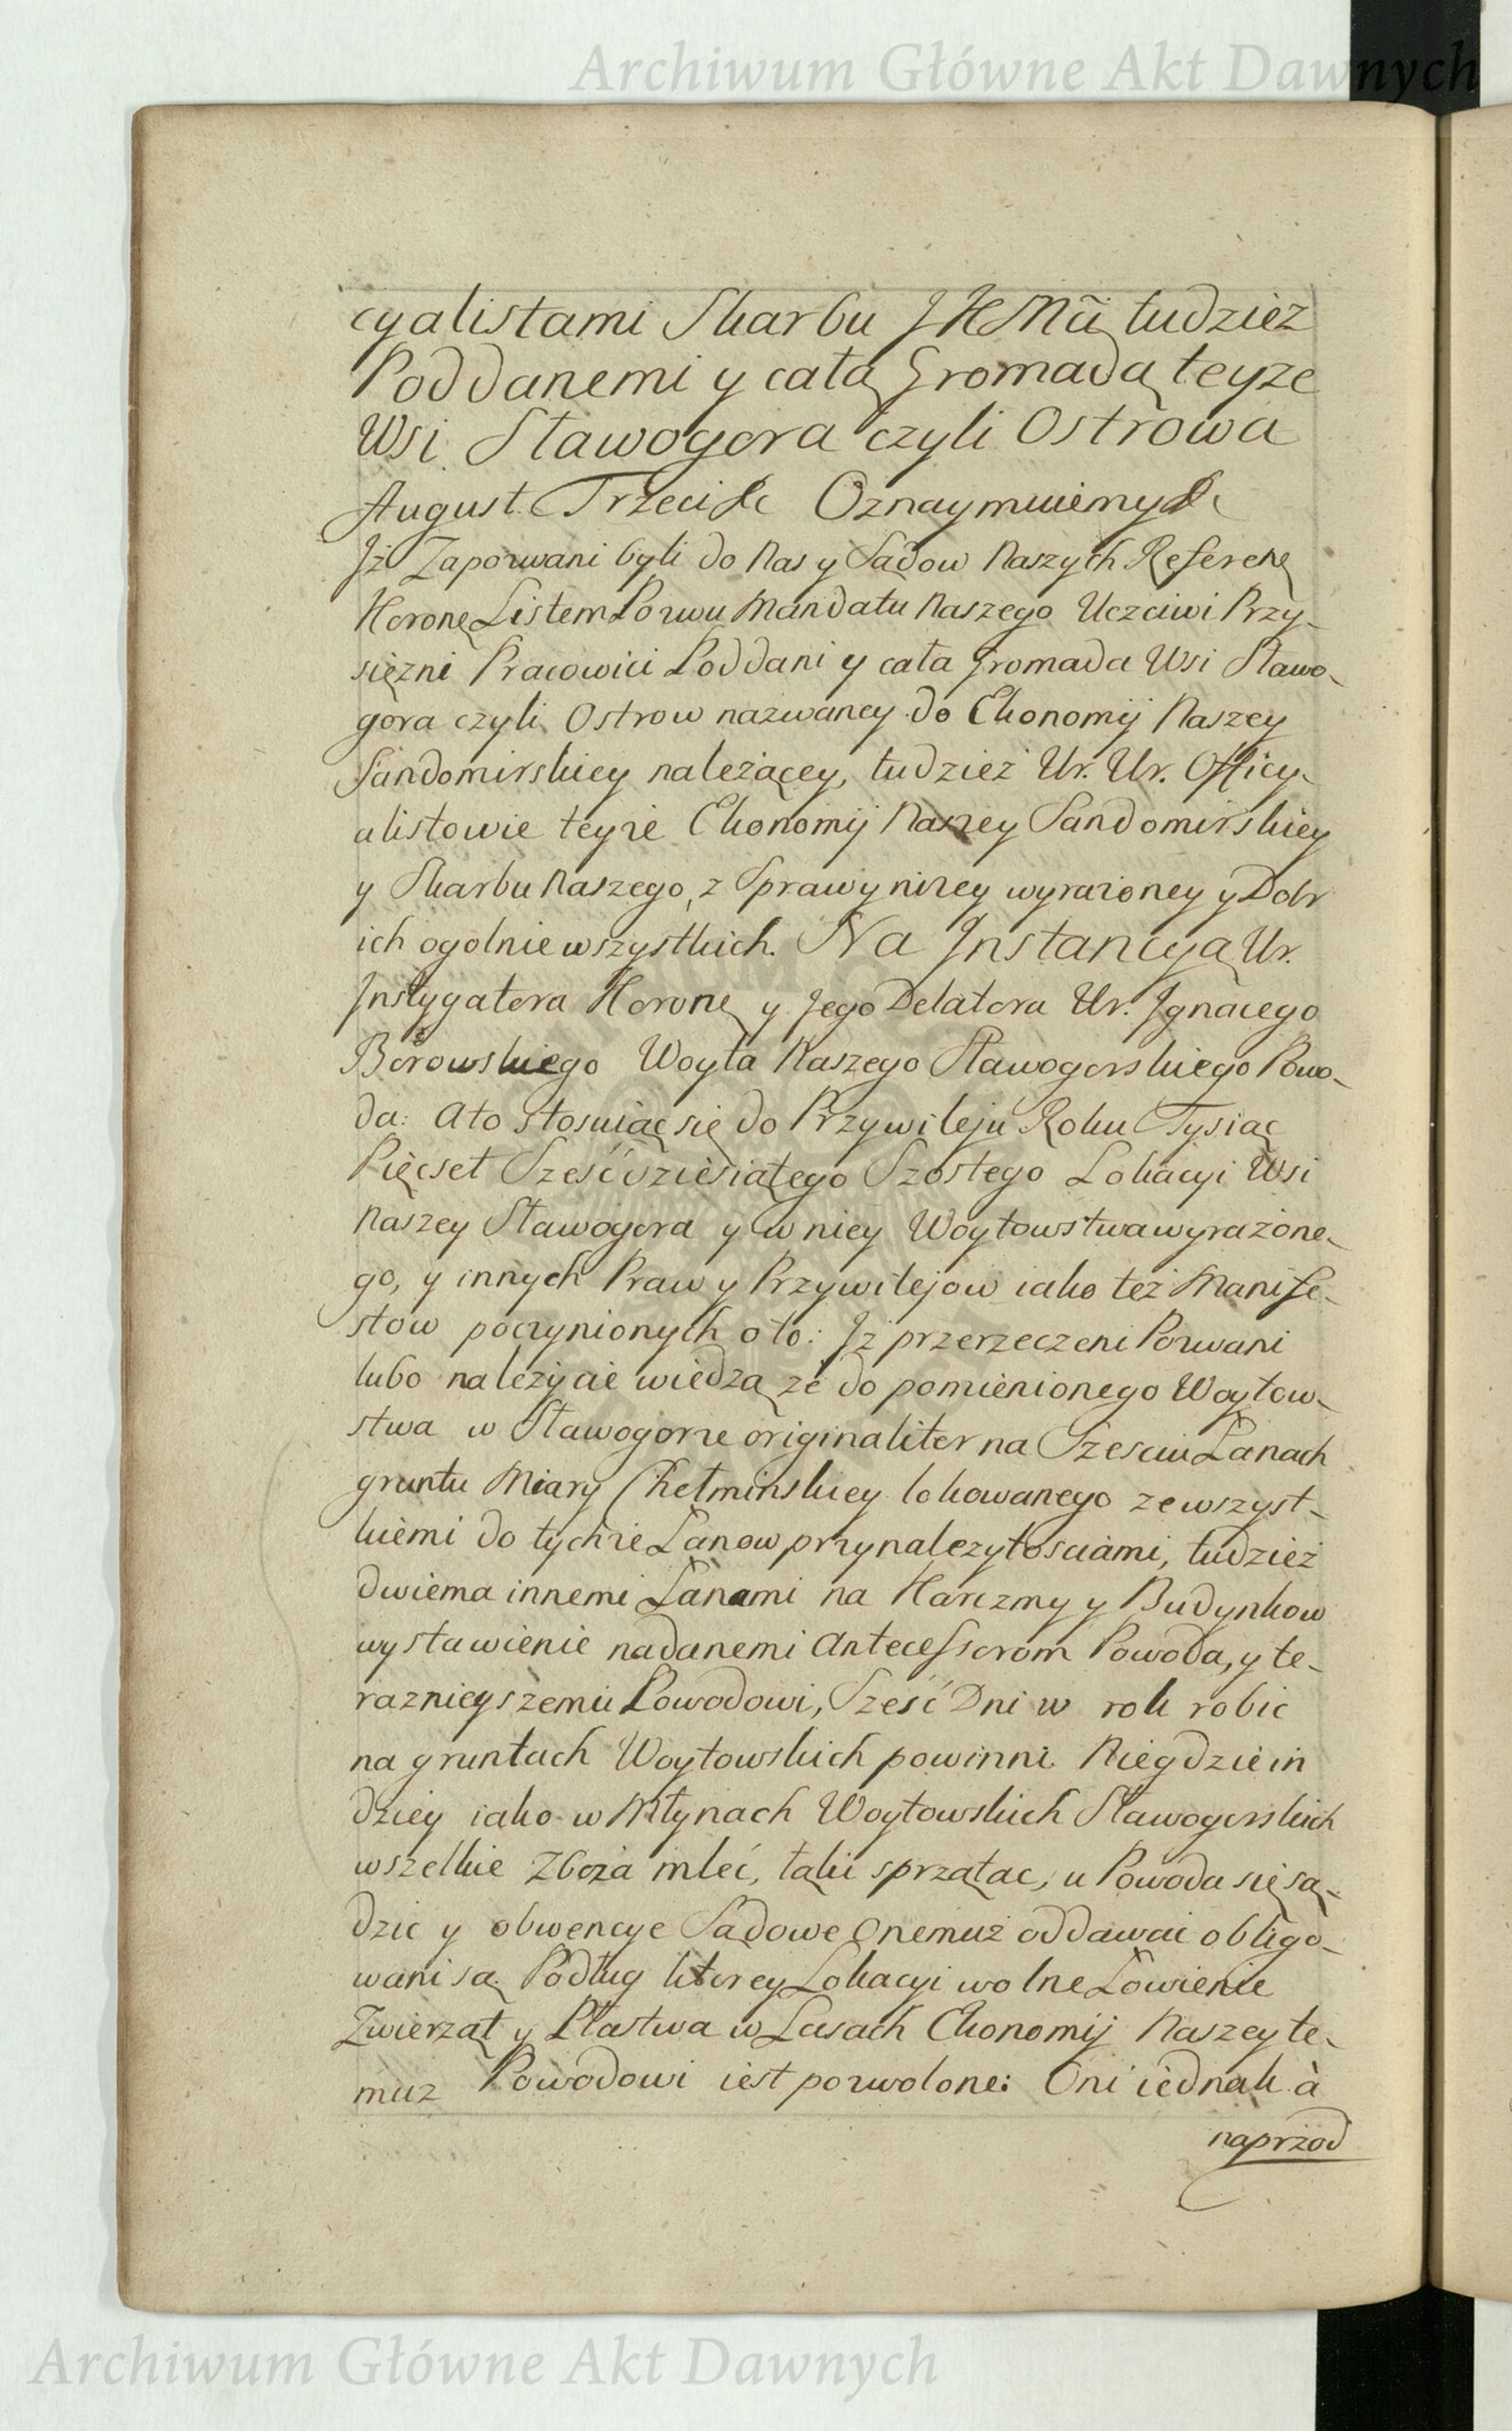 Archiwum Główne Akt Dawnych
cyalistami Skarbu JKMci tudziez
Poddanemi y całą Gromadą teyze
Wsi Sławogora czyli Ostrowa
August Trzeci &c Oznaymuiemy &c
Jż Zapozwani byli do Nas y Sądow Naszych Referen
Koron Listem Pozwu Mandatu Naszego Uczciwi Przy-
siężni Pracowici Poddani y cała Gromada Wsi Sławo-
gora czyli Ostrow nazwaney do Ekonomij Naszey
Sandomirskiey należącey, tudzież Ur. Ur. Officy-
alistowie teyże Ekonomij Naszey Sandomirskiey
y Skarbu Naszego, z Sprawy niżey wyrażoney y Dobr
ich ogolnie wszystkich. Na Jnstancyą Ur.
Jnstygatora Koron y Jego Delatora Ur. Jgnacego
Borowskiego Woyta Naszego Sławogorskiego Powo-
da: Ato stosuiąc się do Przywileju Roku Tysiąc
Pięcset Sześćdziesiątego Szostego Lokacyi Wsi
Naszey Sławogora y w niey Woytowstwa wyrażone-
go, y innych Praw y Przywilejow iako też Manife-
stow poczynionych o to: Jż przerzeczeni Pozwani
lubo należycie wiedzą że do pomienionego Woytow-
stwa w Sławogorze originaliter na Szesciu Łanach
gruntu Miary Chełminskiey lokowanego ze wszyst-
kiemi do tychże Łanow przynalezytosciami, tudzież
dwiema innemi Łanami na Karczmy y Budynkow
wystawienie nadanemi Antecessorom Powoda, y te-
raznieyszemu Powodowi, Sześć Dni w rok robic
na gruntach Woytowskich powinni Niegdzie in
dziey iako w Młynach Woytowskich Sławogorskich
wszelkie Zboża mleć, łąki sprzątac, u Powoda się są-
dzic y obwencye Sądowe Onemuż oddawać obligo-
wani są. Podług ktorey Lokacyi wolne Łowienie
Zwierząt y Ptastwa w Lasach Ekonomij Naszey te-
muz Powodowi iest pozwolone: Oni iednak à
naprzod
Archiwum Główne Akt Dawnych